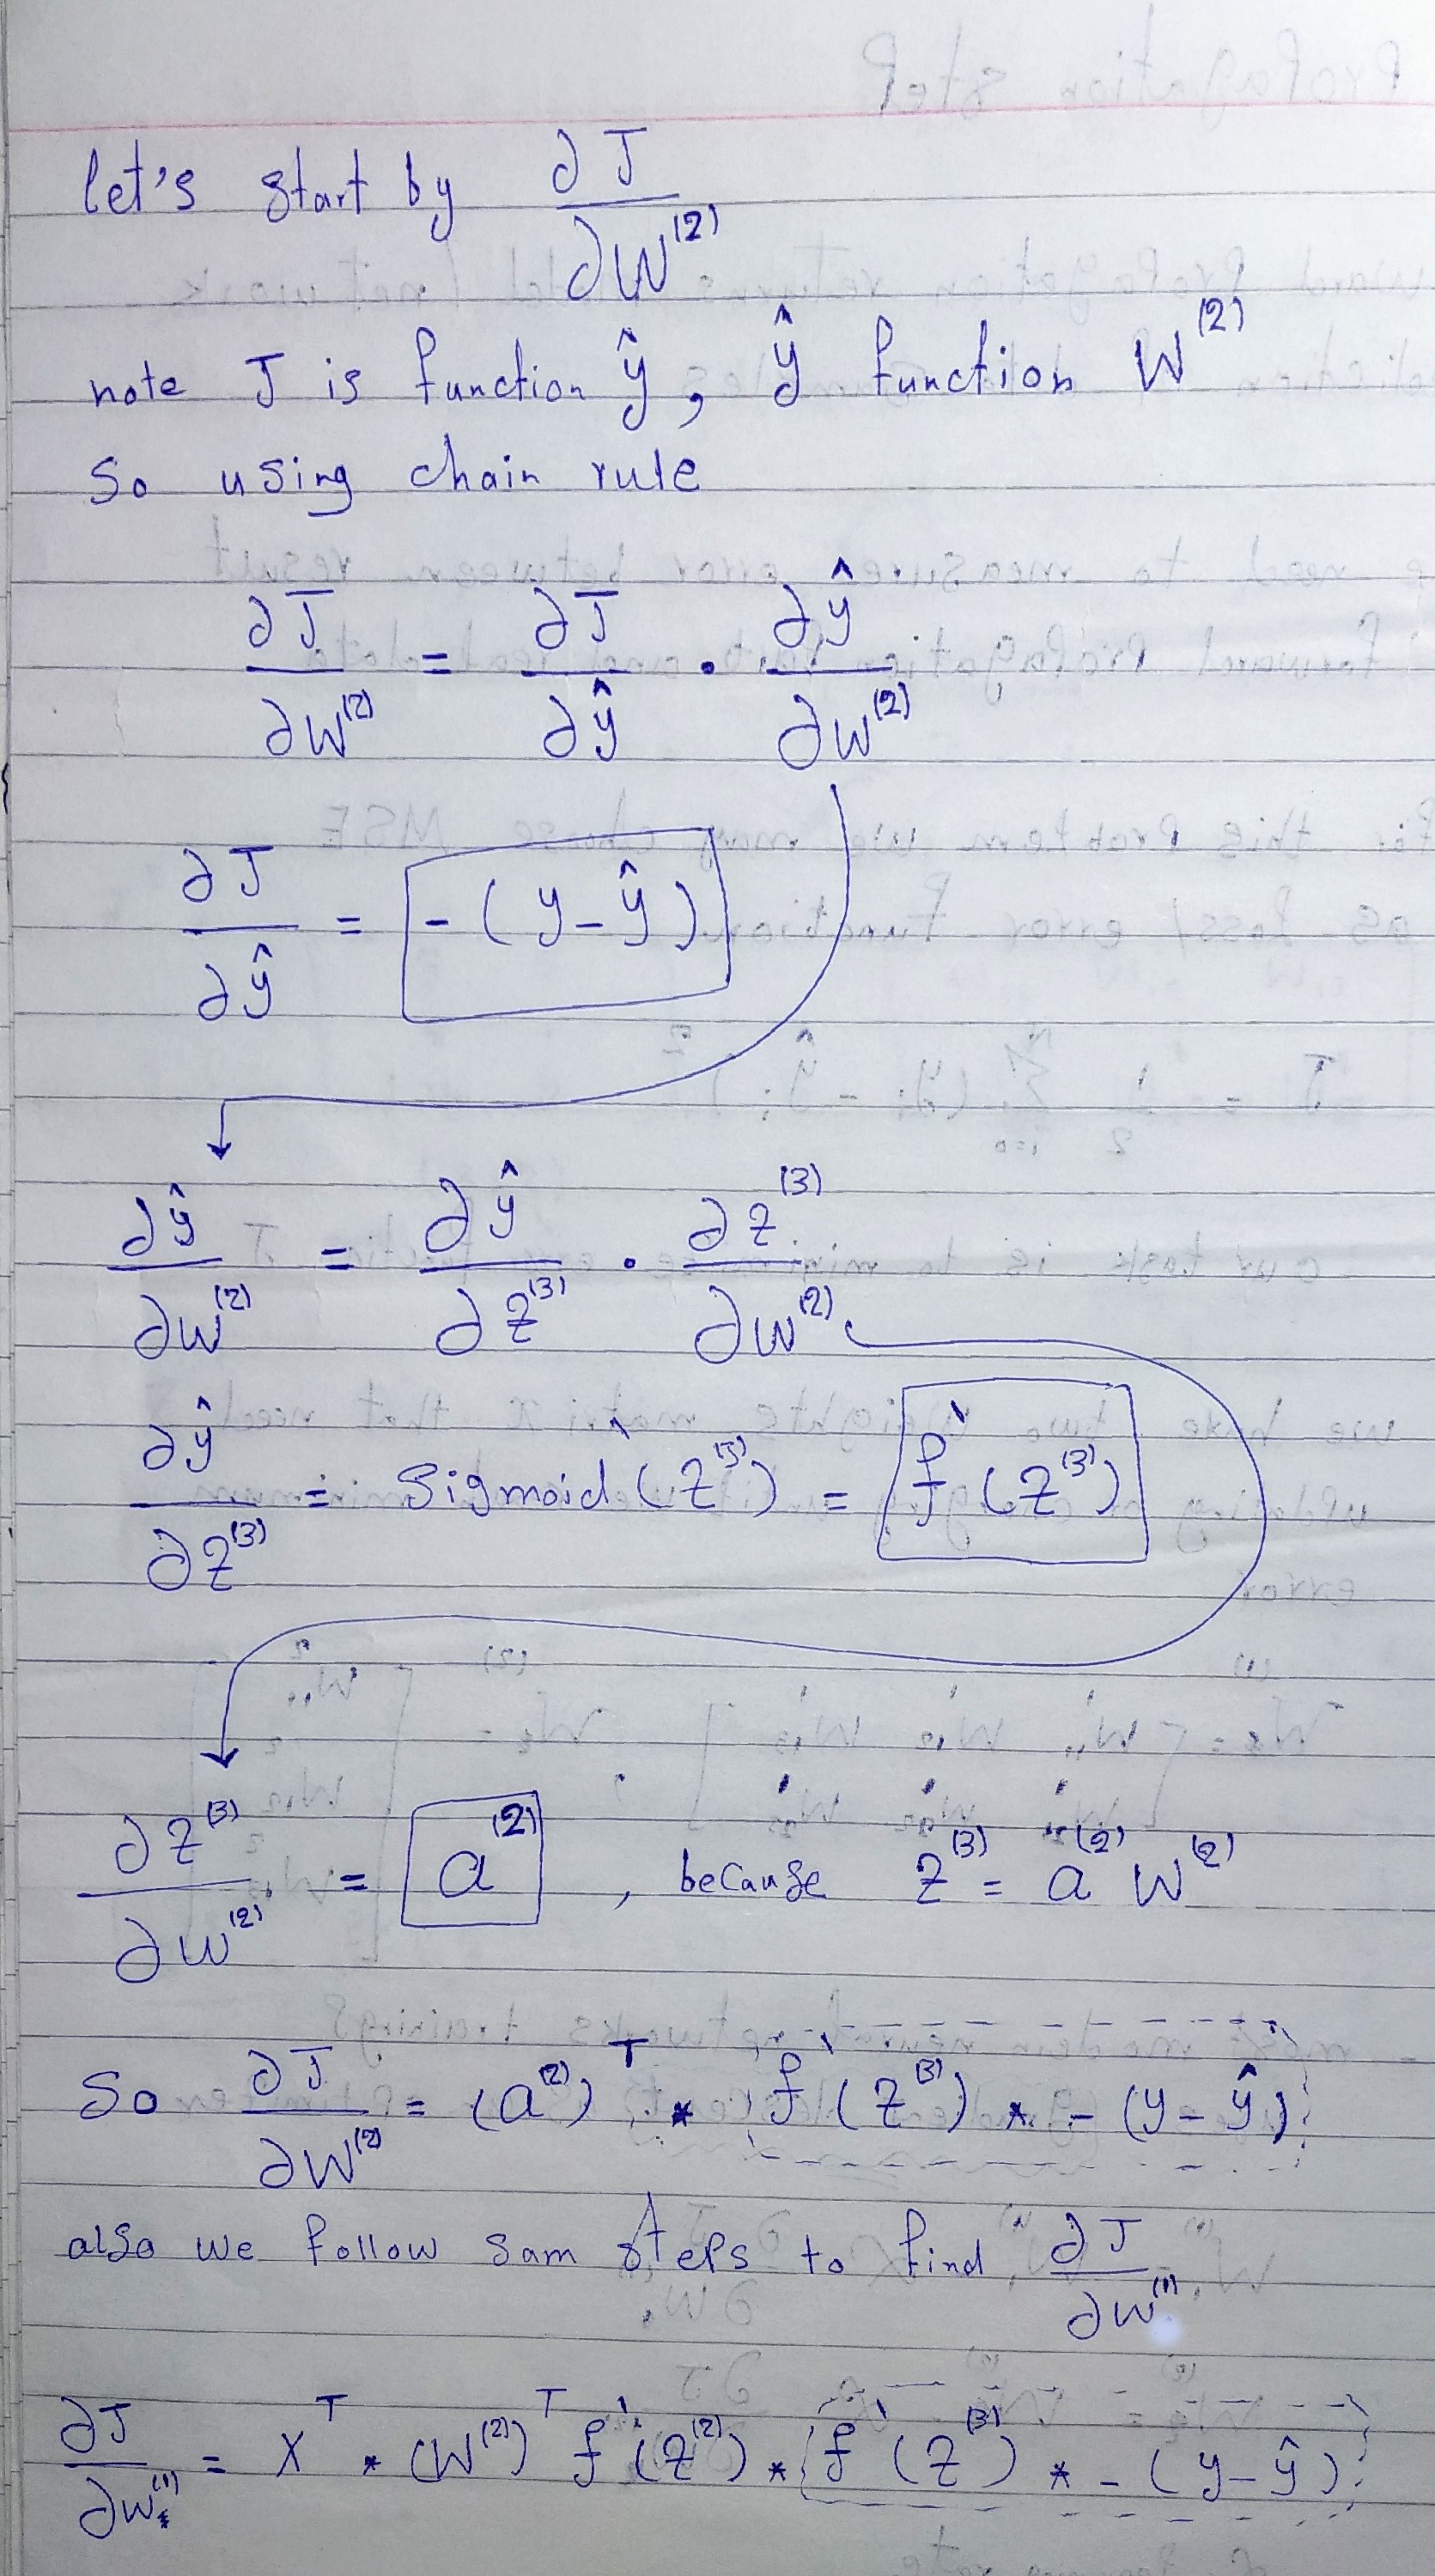 let's start by ∂J/∂W⁽²⁾
note J is function ŷ, ŷ function W⁽²⁾
So using chain rule
∂J/∂W⁽²⁾ = ∂J/∂ŷ · ∂ŷ/∂W⁽²⁾
∂J/∂ŷ = -(y-ŷ)
∂ŷ/∂W⁽²⁾ = ∂ŷ/∂Z⁽³⁾ · ∂Z⁽³⁾/∂W⁽²⁾
∂ŷ/∂Z⁽³⁾ = Sigmoid`(Z⁽³⁾) = f`(Z⁽³⁾)
∂Z⁽³⁾/∂W⁽²⁾ = a⁽²⁾, because Z⁽³⁾ = a⁽²⁾ W⁽²⁾
So ∂J/∂W⁽²⁾ = (a⁽²⁾)ᵀ * f`(Z⁽³⁾) * -(y-ŷ)
also we follow sam steps to find ∂J/∂W⁽¹⁾
∂J/∂W⁽¹⁾ = Xᵀ * (W⁽²⁾)ᵀ f`(Z⁽²⁾) * f`(Z⁽³⁾) * -(y-ŷ)